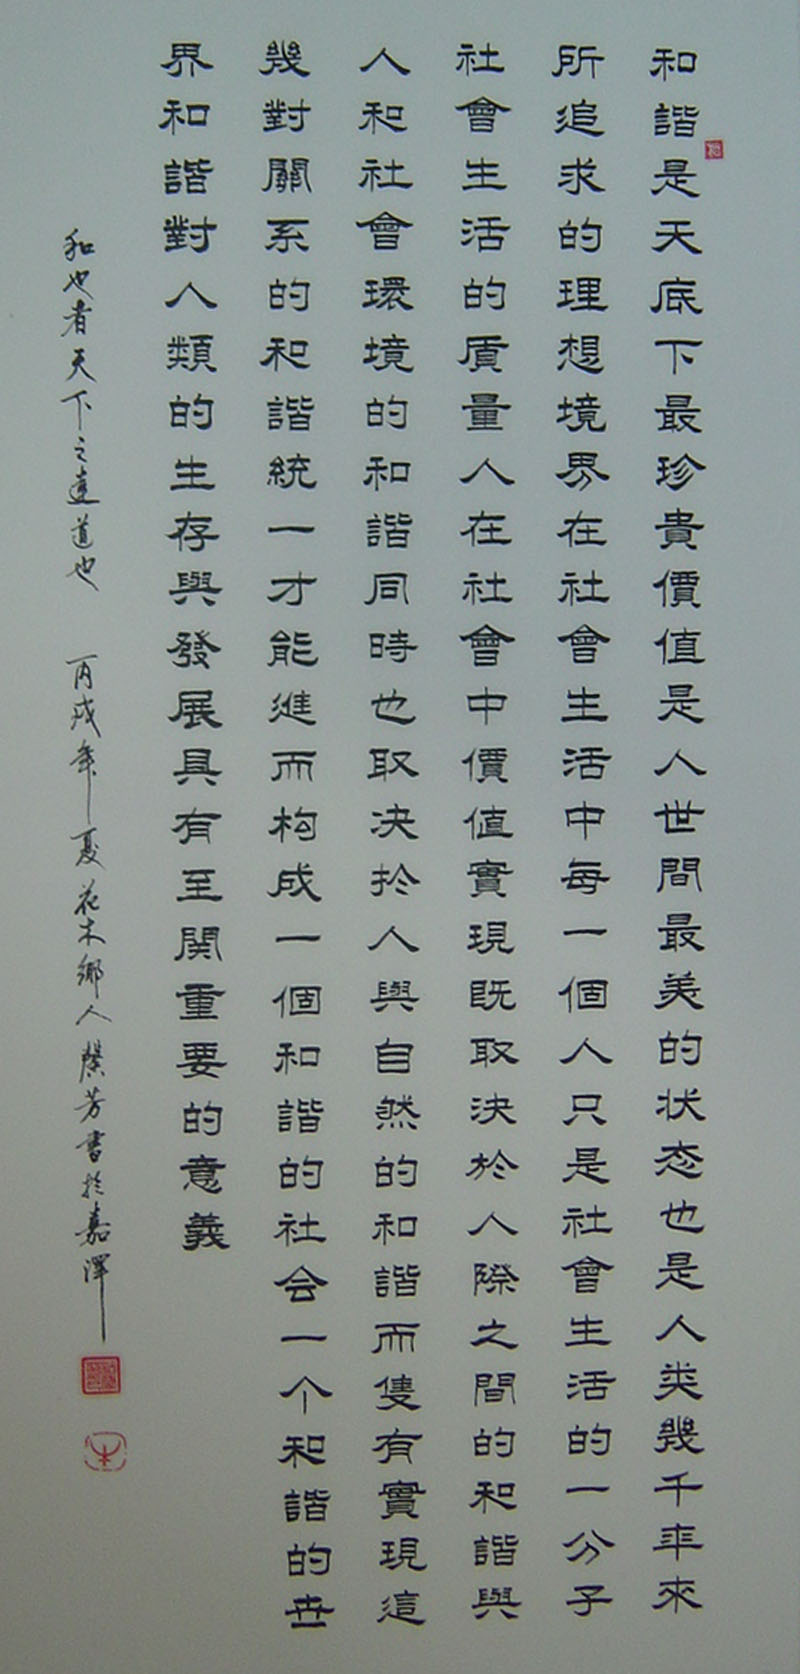 和諧是天底下最珍貴價值是人世間最美的状态也是人类幾千年來
所追求的理想境界在社會生活中每一個人只是社會生活的一分子
社會生活的质量人在社會中價值實現既取决於人際之間的和諧與
人和社會環境的和諧同時也取决於人與自然的和諧而隻有實現這
幾對關系的和諧統一才能進而构成一個和諧的社会一个和諧的世
界和諧對人類的生存與發展具有至関重要的意義
和也者天下之達道也 丙戌年夏花木鄉人馨芳書於嘉澤